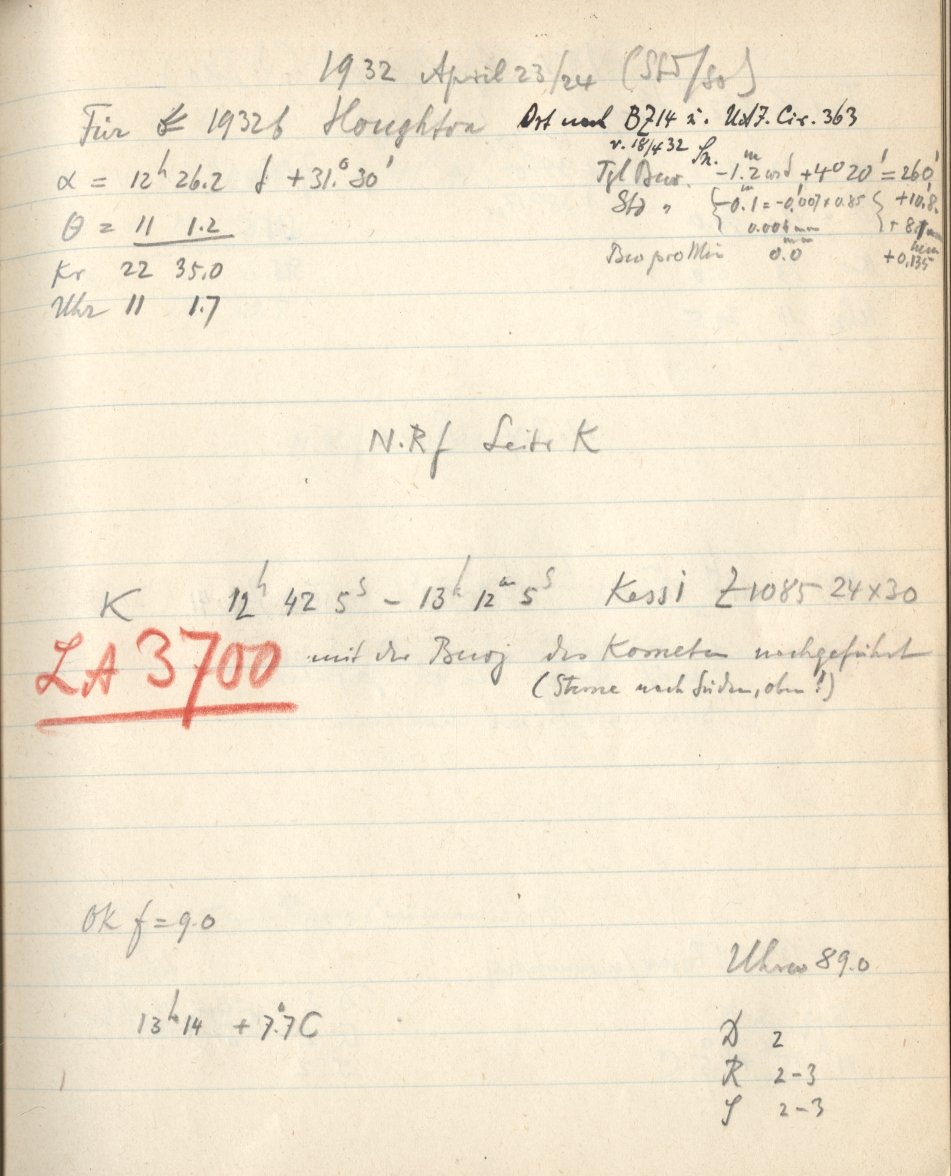 1932 April 23/24 (Sfd/So)
Für 1932b Houghton Ort nach BZ 14 u. UAJ. Cir. 363
v. 18/4 32
α = 12h 26.2 δ +31.°30' Tgl Bew. -1.2m +4° 20' = 260'
θ = 11 1.2 Std " -0.1m = -0.007 × 0.85 +10.8
0.006 mm
Kr 22 35.0 Bew pro Min 0.0 mm +0,135
Uhr 11 1.7
N.Rf Seite K
K 12h 42 5s - 13h 12m 5s Kassi Z 1085 24×30
LA 3700 mit der Beweg des Kometen nachgeführt
(Sterne nach Süden, oben!)
Ok f = 9.0
Uhren 89.0
13h 14 + 7.°7 C
D 2
R 2-3
S 2-3